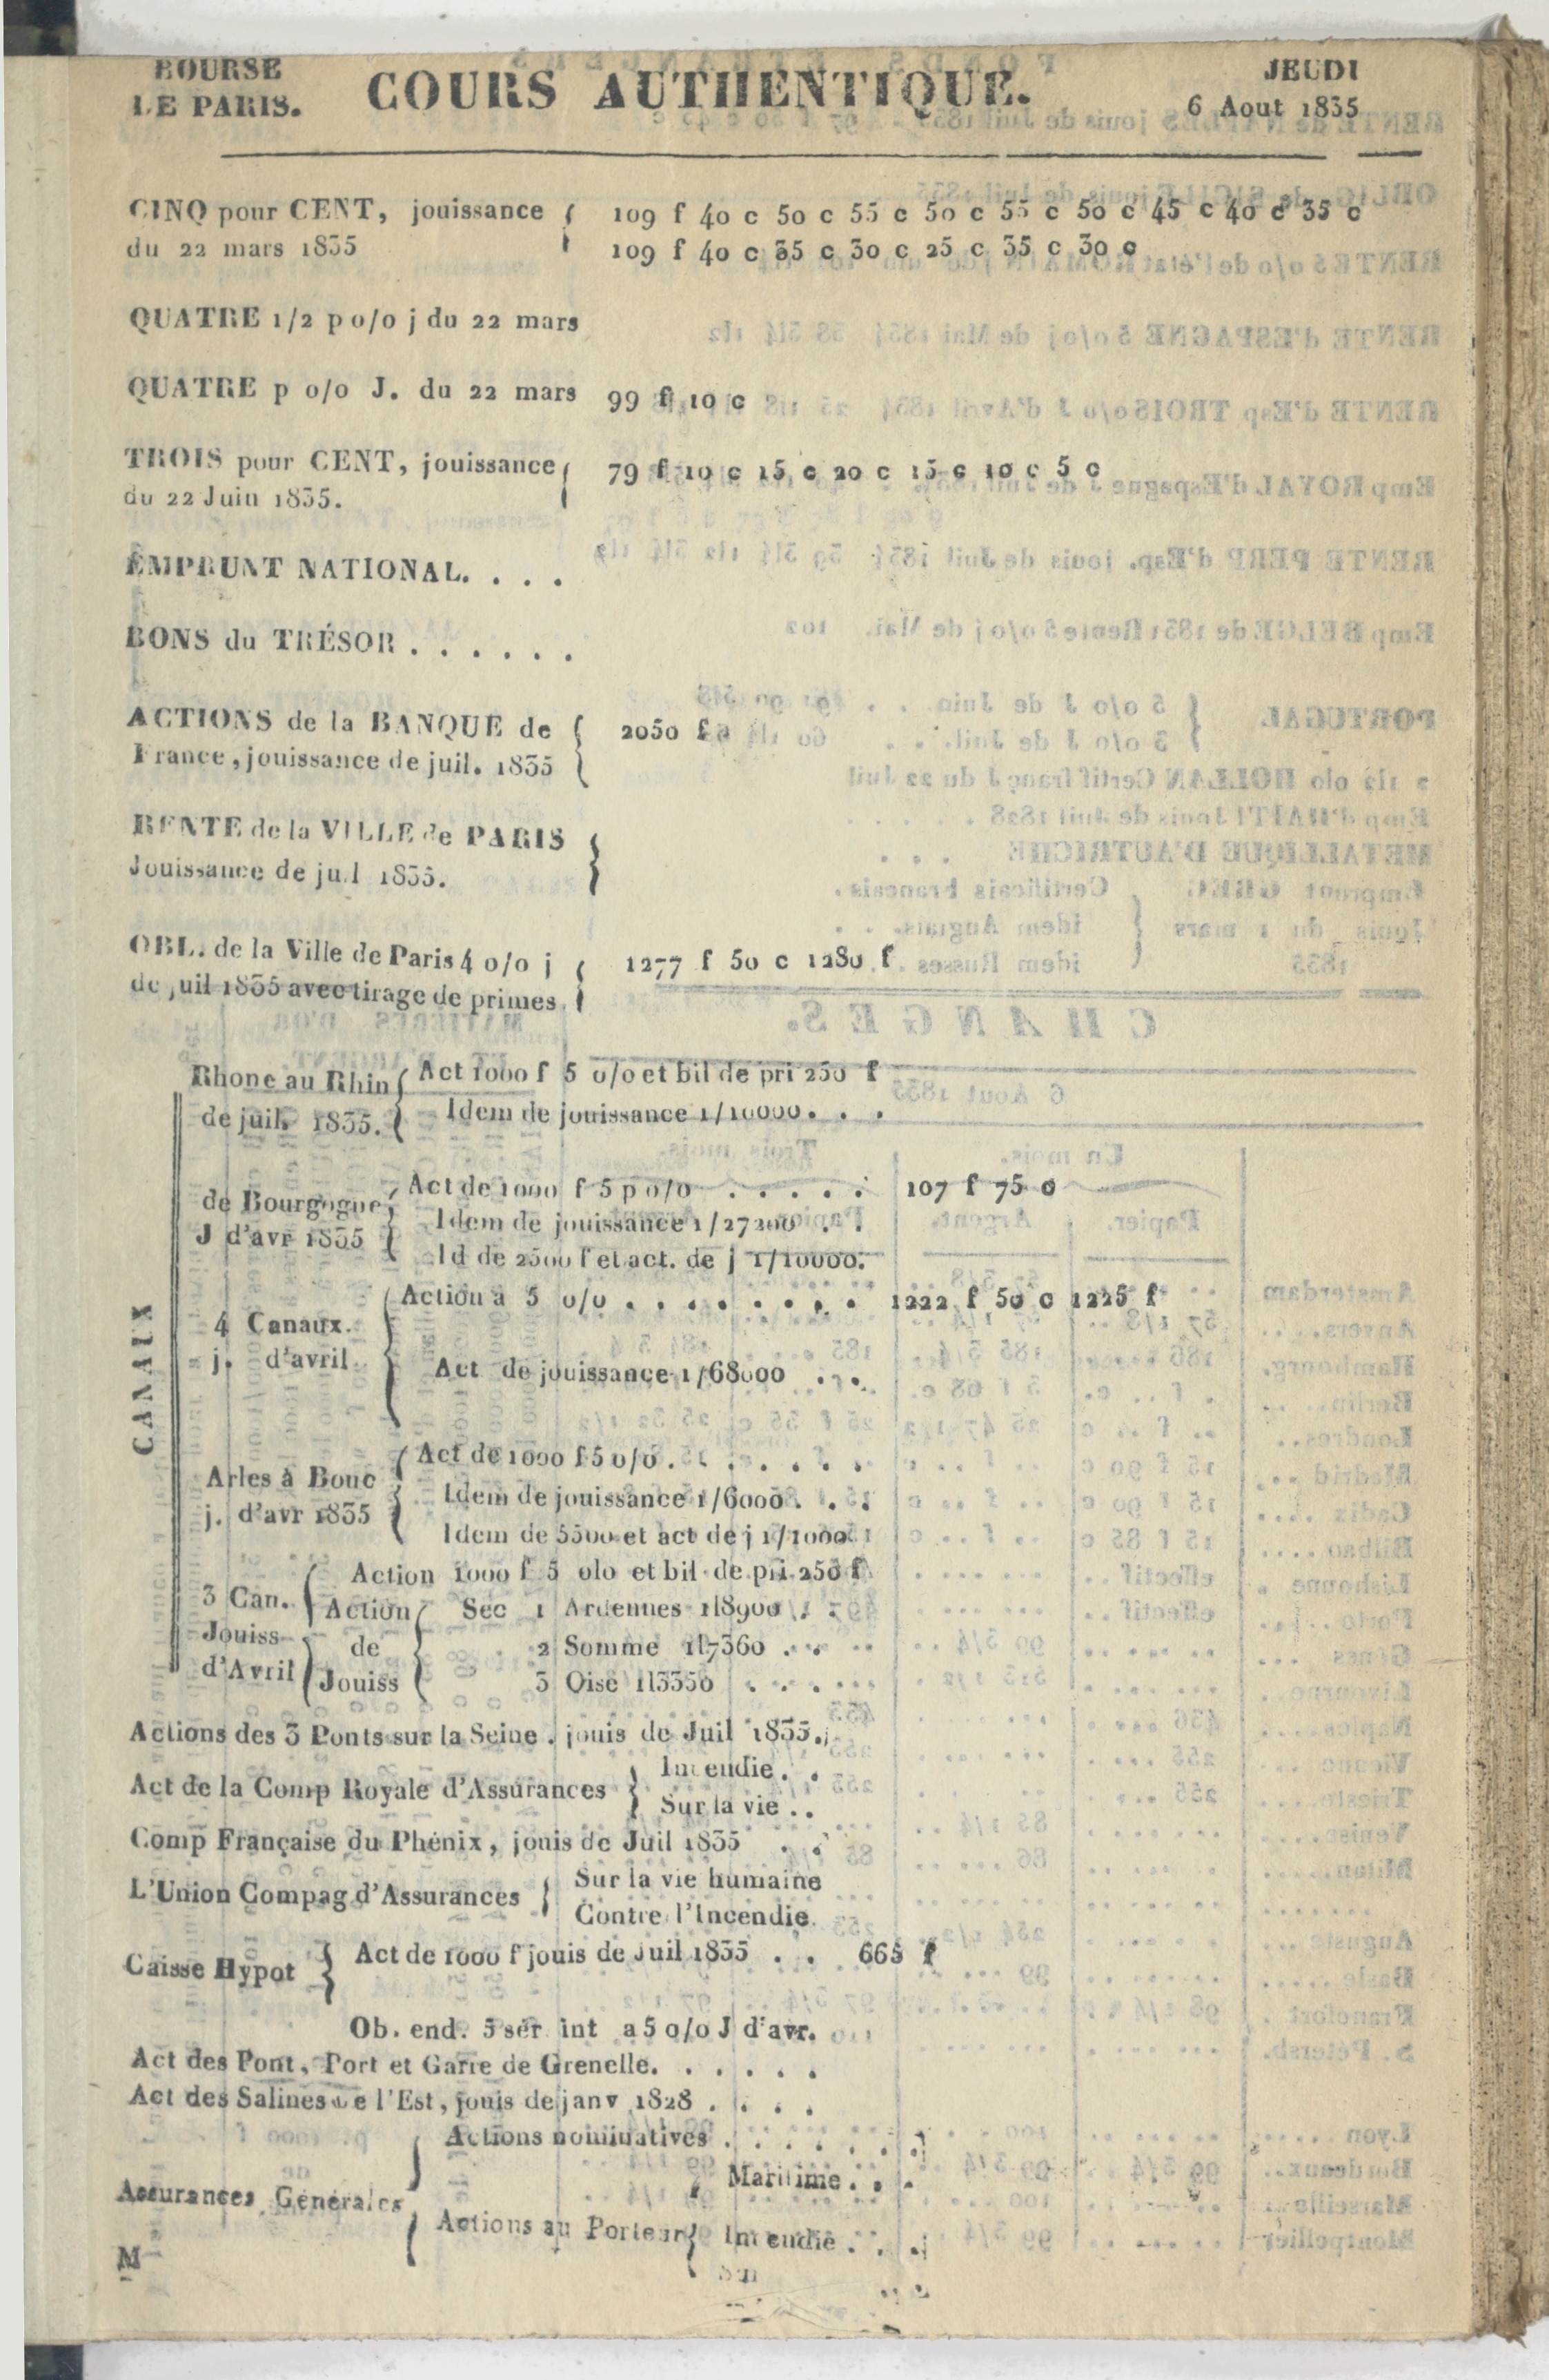 BOURSE
DE PARIS.
COURS AUTHENTIQUE.
JEUDI
6 Aout 1835
CINQ pour CENT, jouissance
du 22 mars 1835
109 f 40 c 50 c 55 c 50 c 55 c 50 c 45 c 40 c 35 c
109 f 40 c 35 c 30 c 25 c 35 c 30 c
QUATRE 1/2 p o/o j du 22 mars
QUATRE p o/o J. du 22 mars 99 f 10 c
TROIS pour CENT, jouissance
du 22 Juin 1835.
79 f 10 c 15 c 20 c 15 c 10 c 5 c
EMPRUNT NATIONAL. . . .
BONS du TRÉSOR . . . . . .
ACTIONS de la BANQUE de
France, jouissance de juil. 1835
2050 f
RENTE de la VILLE de PARIS
Jouissance de jul 1835.
OBL. de la Ville de Paris 4 o/o j
de juil 1835 avec tirage de primes
1277 f 50 c 1280 f
CANAUX
Rhone au Rhin
de juil. 1835.
Act 1000 f 5 o/o et bil de pri 250 f
Idem de jouissance 1/10000. . .
de Bourgogne
J d'avr 1835
Act de 1000 f 5 p o/o . . . . . 107 f 75 c
Idem de jouissance 1/27200 . .
Id de 2500 f et act. de j 1/10000.
4 Canaux.
j. d'avril
Action à 5 o/o . . . . . . . . . 1222 f 50 c 1225 f
Act de jouissance 1/68000 . . .
Arles à Bouc
j. d'avr 1835
Act de 1000 f 5 o/o . . . . . . .
Idem de jouissance 1/6000 . . .
Idem de 5500 et act de j 1/1000
3 Can.
Jouiss
d'Avril
Action 1000 f 5 olo et bil de pri 250 f
Action
de
Jouiss
Sec 1 Ardennes 1l8900 . .
2 Somme 1l7360 . . . .
3 Oise 1l3350 . . . . .
Actions des 3 Ponts sur la Seine . jouis de Juil 1835.
Act de la Comp Royale d'Assurances
Incendie . .
Sur la vie . .
Comp Française du Phénix, jouis de Juil 1835 . .
L'Union Compag d'Assurances
Sur la vie humaine
Contre l'Incendie
Caisse Hypot
Act de 1000 f jouis de Juil 1835 . . 665 f
Ob. end. 5 sér int a 5 o/o J d'avr.
Act des Pont, Port et Garre de Grenelle. . . . . .
Act des Salines de l'Est, jouis de janv 1828 . . . .
Assurances Générales
Actions nominatives . . . . . .
Actions au Porteur
Maritime . . .
Incendie . . .
M